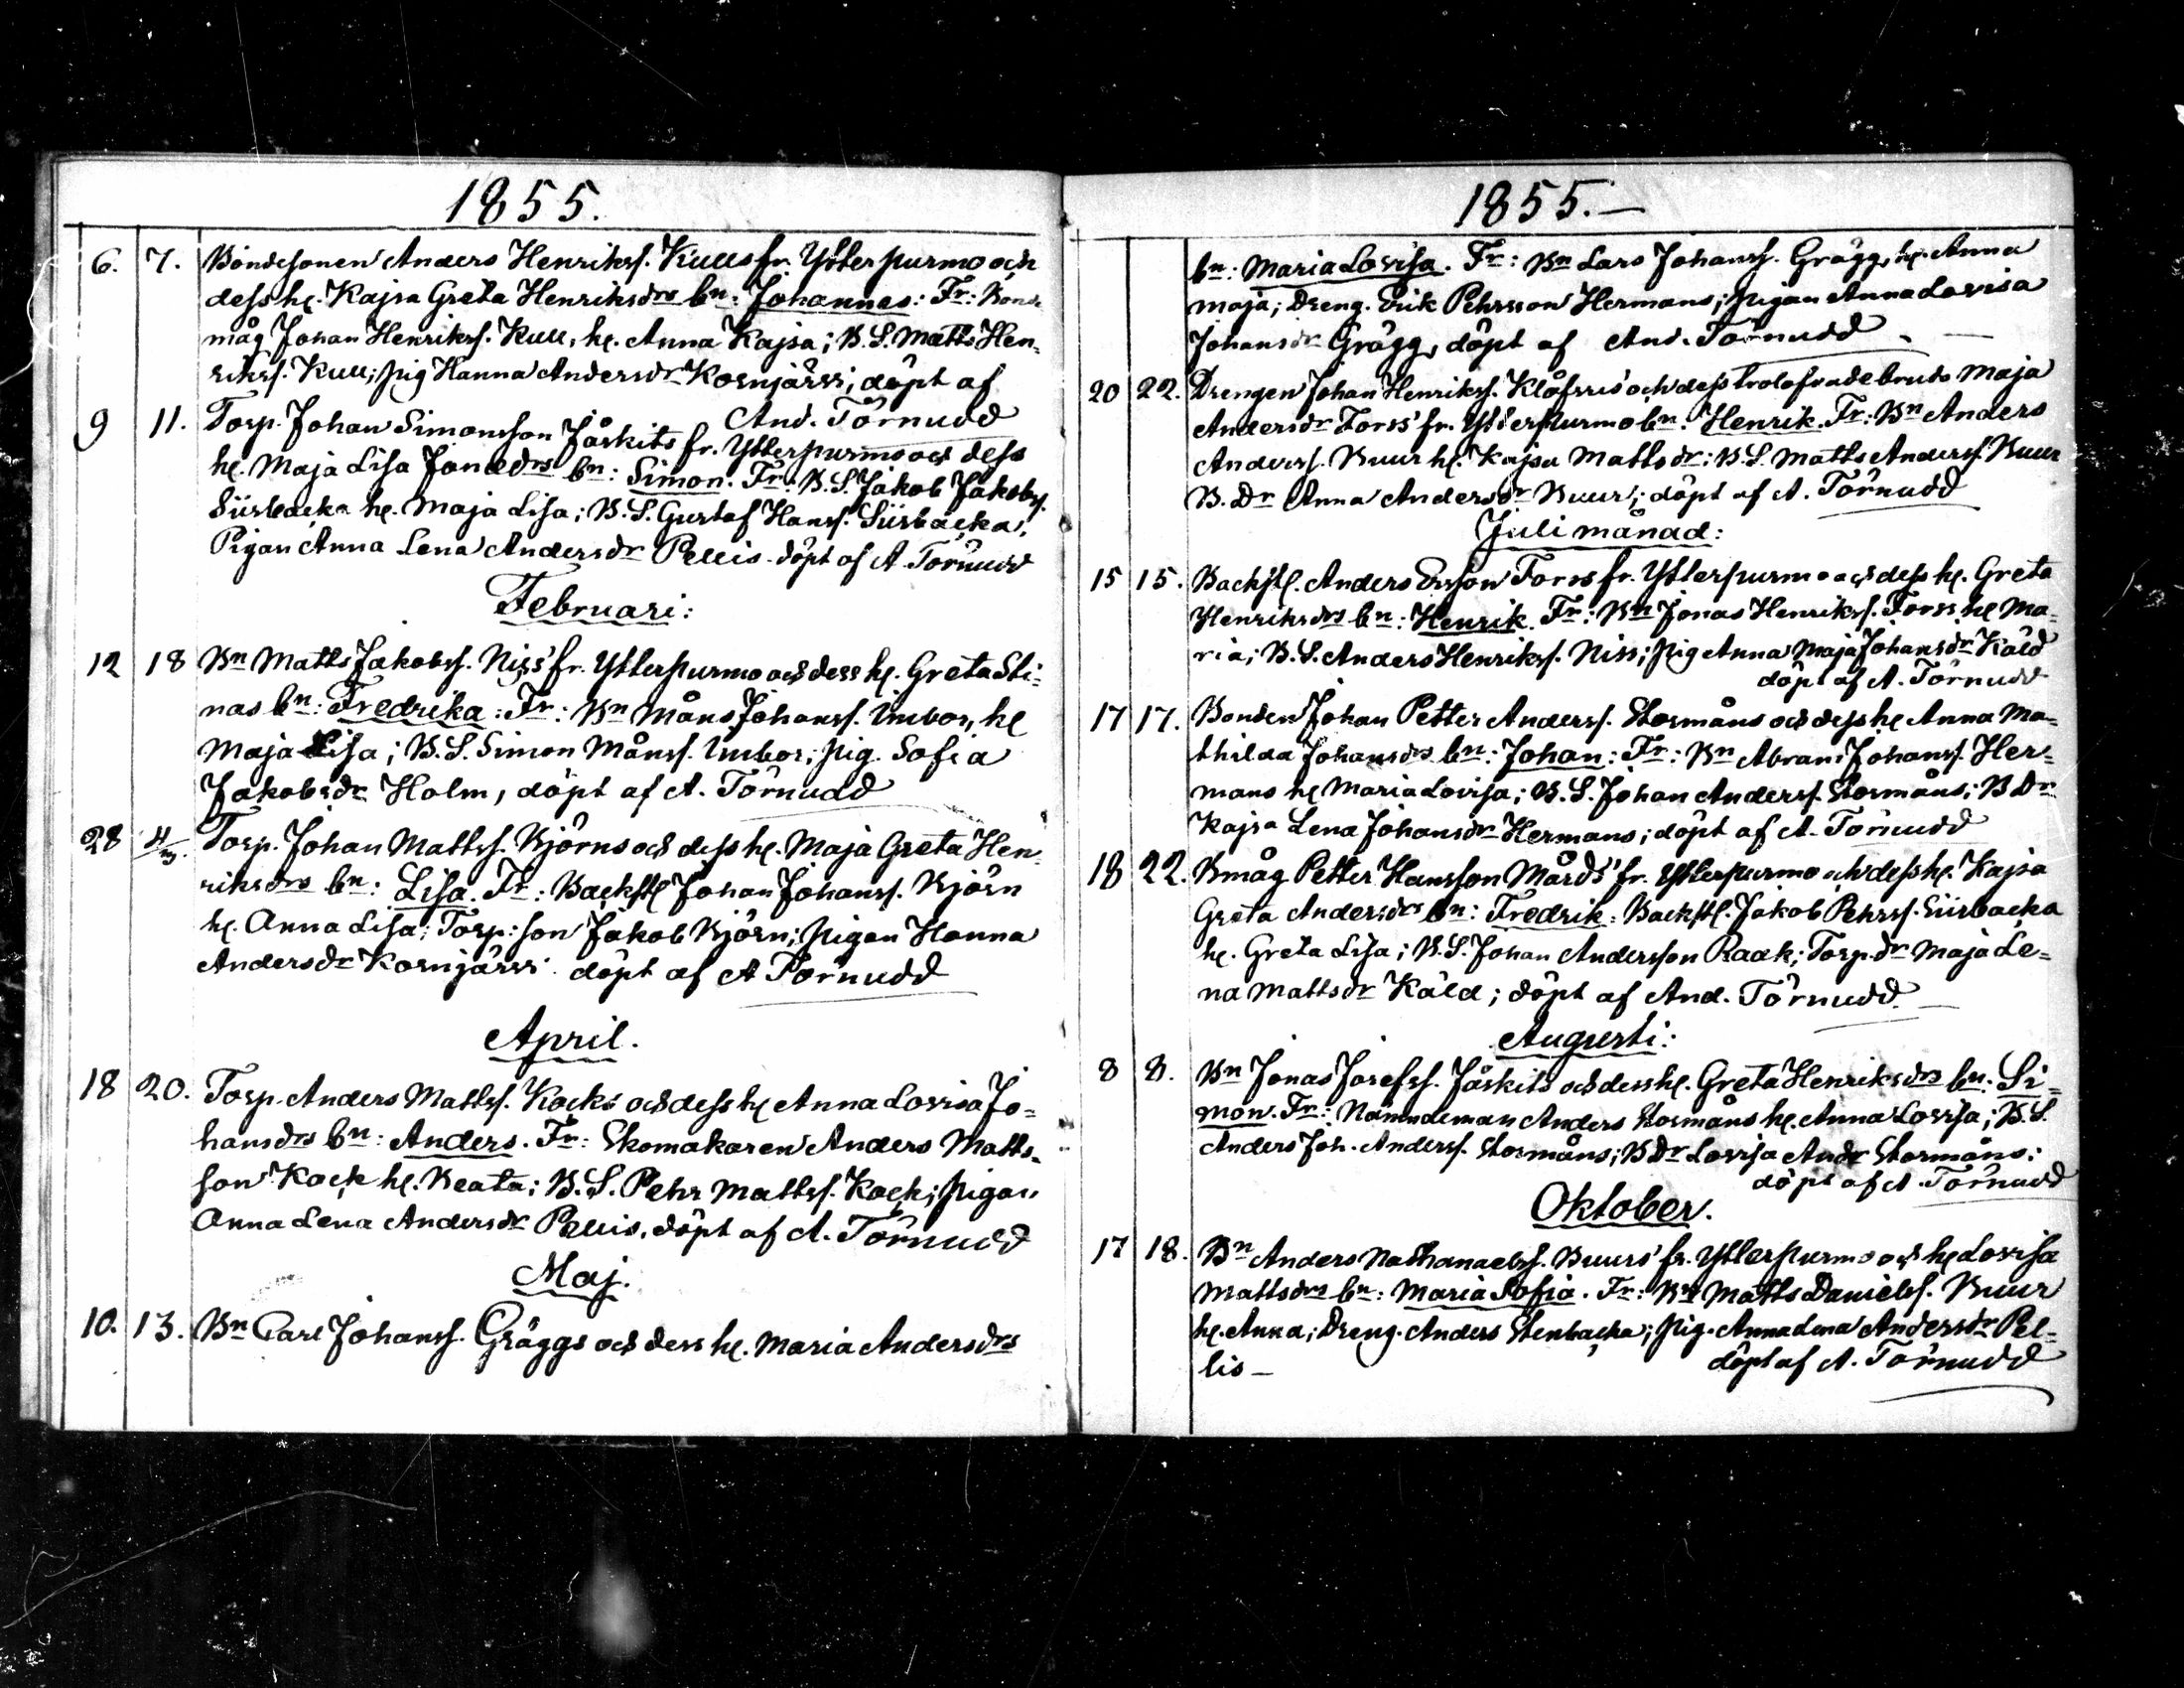 1855.
6. 7. Bondesonen Anders Henrikss. Kulls fr. Ytterpurmo och
dess h. Kajsa Greta Henriksdrs bn: Johannes: Fr: Bonde
måg Johan Henrikss. Kull, h. Anna Kajsa; B.S. Matts Hen-
rikss. Kull; pig Hanna Andersdr Kornjärvi; döpt af
And. Törnudd
9 11. Torp. Johan Simonsson Jåskits fr. Ytterpurmo och dess
h. Maja Lisa Jonædrs bn: Simon. Fr: B.S. Jakob Jakobss.
Siisbacka h. Maja Lisa; B.S. Gustaf Hanss. Siisbacka;
Pigan Anna Lena Andersdr Pellis. döpt af A. Törnudd
Februari:
12 18 Bn Matts Jakobss. Niss' fr. Ytterpurmo och dess h. Greta Sti-
nas bn: Fredrika: Fr: Bn Måns Johanss. Imbor, h
Maja Lisa; B.S. Simon Månss. Imbor; pig. Sofia
Jakobsdr Holm, döpt af A. Törnudd
28 4/3. Torp. Johan Mattss. Björns och dess h. Maja Greta Hen-
riksdrs bn: Lisa. Fr: Backstl Johan Johanss. Björn
h. Anna Lisa; Torp: son Jakob Björn; pigan Hanna
Andersdr Kornjärvi döpt af A Törnudd
April.
18 20. Torp. Anders Mattss. Kocks och dess h Anna Lovisa Jo-
hansdrs bn: Anders. Fr: Skomakaren Anders Matts-
son Kock h. Beata; B.S. Pehr Mattss. Kock; pigan
Anna Lena Andersdr Pellis, döpt af A. Törnudd
Maj.
10. 13. Bn Carl Johanss. Gräggs och dess h. Maria Andersdrs
1855.—
bn: Maria Lovisa. Fr: Bn Lars Johanss. Grägg, h. Anna
Maja; Dreng. Erik Pehrsson Hermans; pigan Anna Lovisa
Johansdr Grägg, döpt af And. Törnudd
20 22. Drengen Johan Henrikss. Klåfsris' och dess trolofvade bruds Maja
Andersdr Forss' fr. Ytterpurmo bn: Henrik. Fr: Bn Anders
Anderss. Buur h. Kajsa Mattsdr; B.S. Matts Anderss. Buur
B.Dr Anna Andersdr Buur; döpt af A. Törnudd
Juli månad:
15 15. Backstl. Anders Ersson Forss fr. Ytterpurmo och dess h. Greta
Henriksdrs bn: Henrik. Fr: Bn Jonas Henrikss. Forss h Ma-
ria; B.S. Anders Henrikss. Niss; pig Anna Maja Johansdr Käld
döpt af A. Törnudd
17 17. Bonden Johan Petter Anderss. Stormåns och dess h Anna Ma-
thilda Johansdrs bn: Johan: Fr: Bn Abram Johanss. Her-
mans h Maria Lovisa; B.S. Johan Anderss. Stormåns; B Dr
Kajsa Lena Johansdr Hermans; döpt af A. Törnudd
18 22. Bmåg Petter Hansson Mårds' fr. Ytterpurmo och dess h. Kajsa
Greta Andersdrs bn: Fredrik: Backstl. Jakob Pehrss. Siisbacka
h. Greta Lisa; B.S. Johan Andersson Raak; Torp.dr Maja Le-
na Mattsdr Käld; döpt af And. Törnudd
Augusti:
8 8. Bn Jonas Josefss. Jåskits och dess h. Greta Henriksdrs bn: Si-
mon. Fr: Nämndeman Anders Stormåns h. Anna Lovisa; B.S.
Anders Joh. Anderss. Stormåns; B Dr Lovisa Andr Stormåns;
döpt af A. Törnudd
Oktober.
17 18. Bn Anders Nathanaelss. Buurs' fr. Ytterpurmo och h Lovisa
Mattsdrs bn: Maria Sofia. Fr: Bn Matts Danielss. Buur
h. Anna; Dreng. Anders Stenbacka; pig. Anna Lena Andersdr Pel-
lis — döpt af A. Törnudd